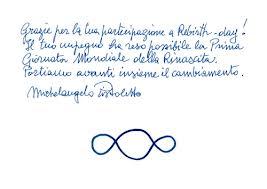 Grazie per la tua partecipazione a Rebirth-day!
Il tuo impegno ha reso possibile la Prima
Giornata Mondiale della Rinascita.
Portiamo avanti insieme il cambiamento.
Michelangelo Pistoletto